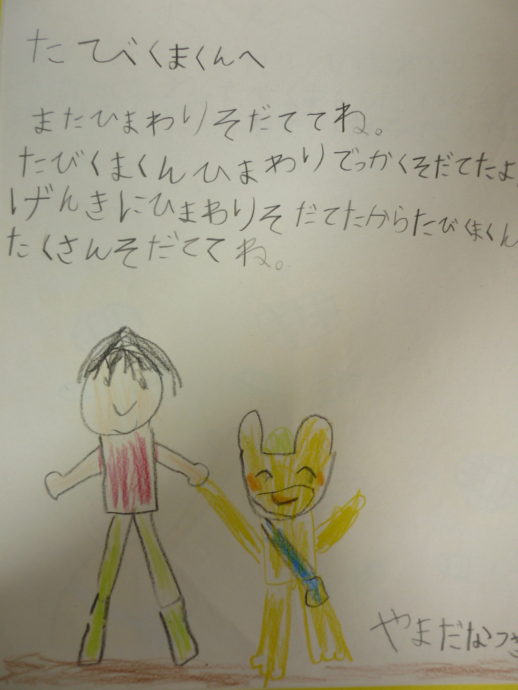 たびくまくんへ
またひまわりそだててね。
たびくまくんひまわりでっかくそだてたよ
げんきにひまわりそだてたからたびくまくん
たくさんそだててね。
やまだなつき